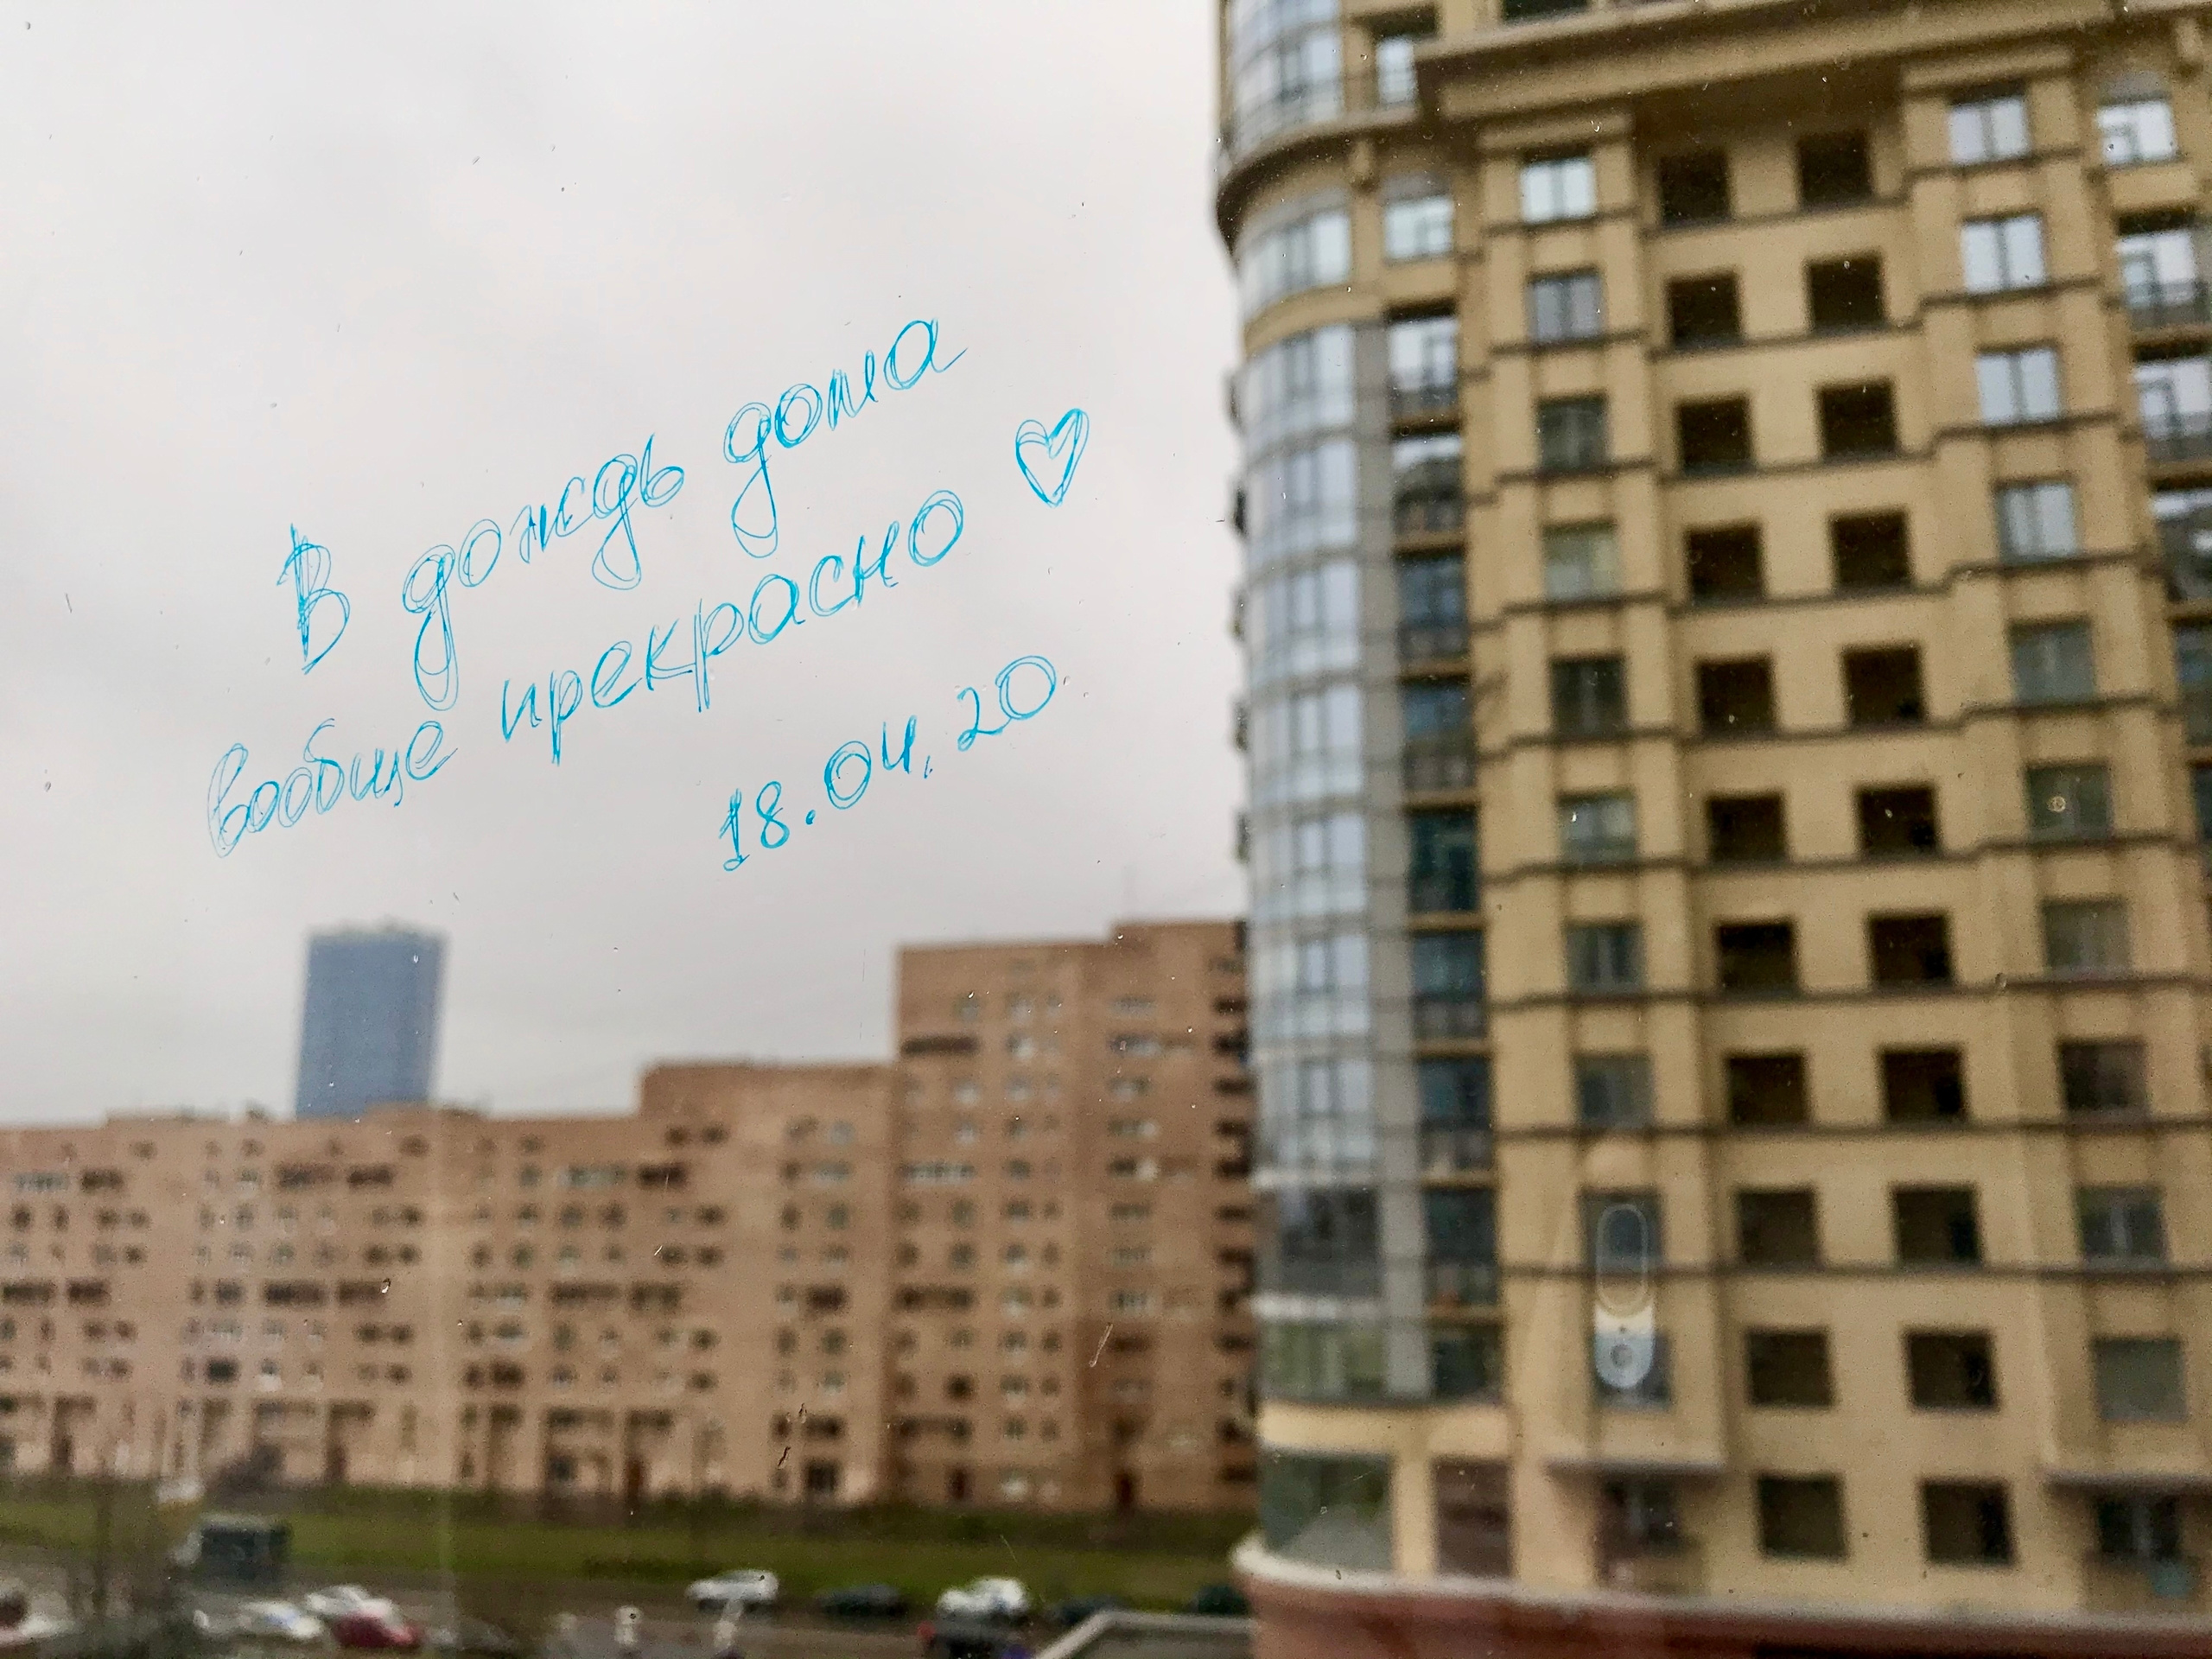 В дождь дома
вообще прекрасно ♡
18.04.20